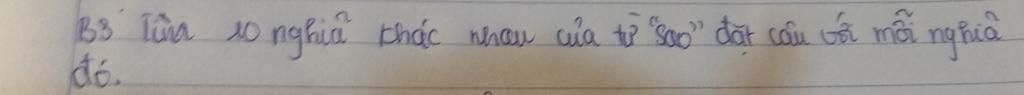 B3 Tìm 10 nghĩa khác nhau của từ "sao" đặt câu với mỗi nghĩa
đó.